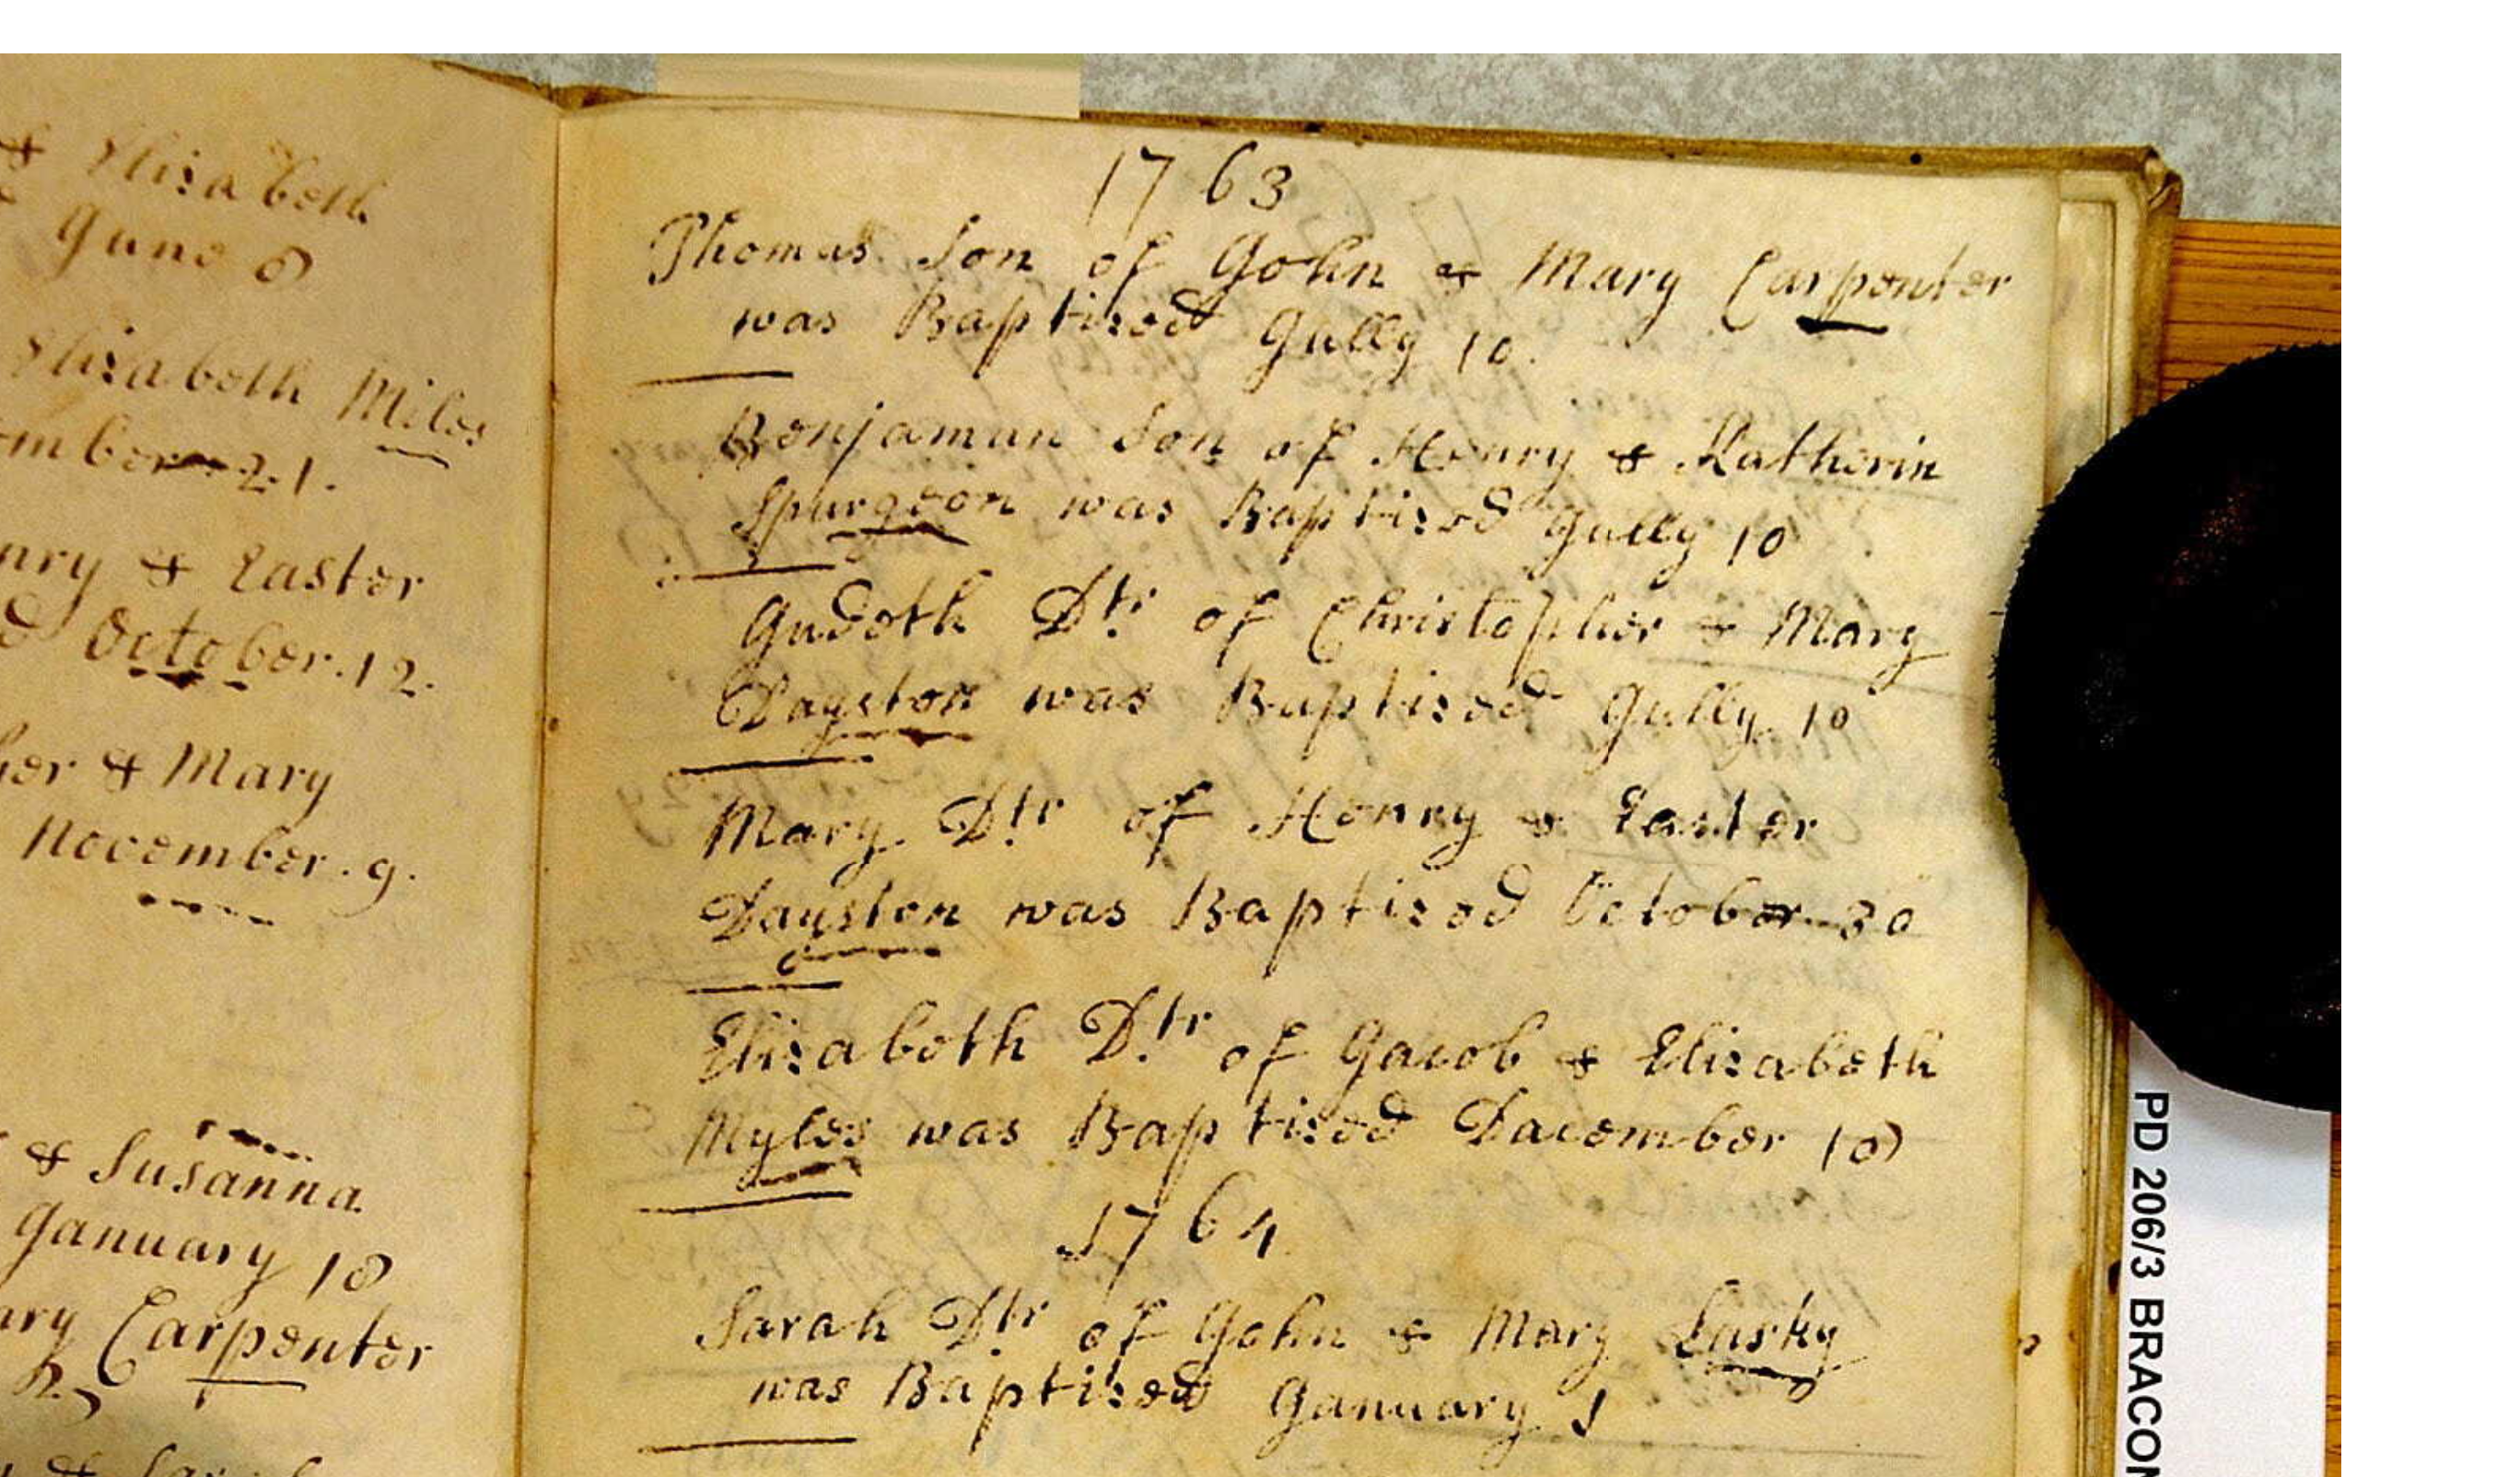 & Elizabeth
June 8
Elizabeth Miles
ember 21.
nry & Easter
d October. 12.
her & Mary
November. 9.
& Susanna
January 18
ary Carpenter
1763
Thomas Son of John & Mary Carpenter
was Baptized Jully 10.
Benjaman Son of Henry & Katherin
Spurgeon was Baptized Jully 10
Judeth Dtr of Christopher & Mary
Dayston was Baptized Jully 10
Mary Dtr of Henry & Easter
Dayston was Baptized October 30
Elizabeth Dtr of Jacob & Elizabeth
Myles was Baptized Dacember 18
1764
Sarah Dtr of John & Mary Lusky
was Baptized January 1
PD 206/3 BRACON